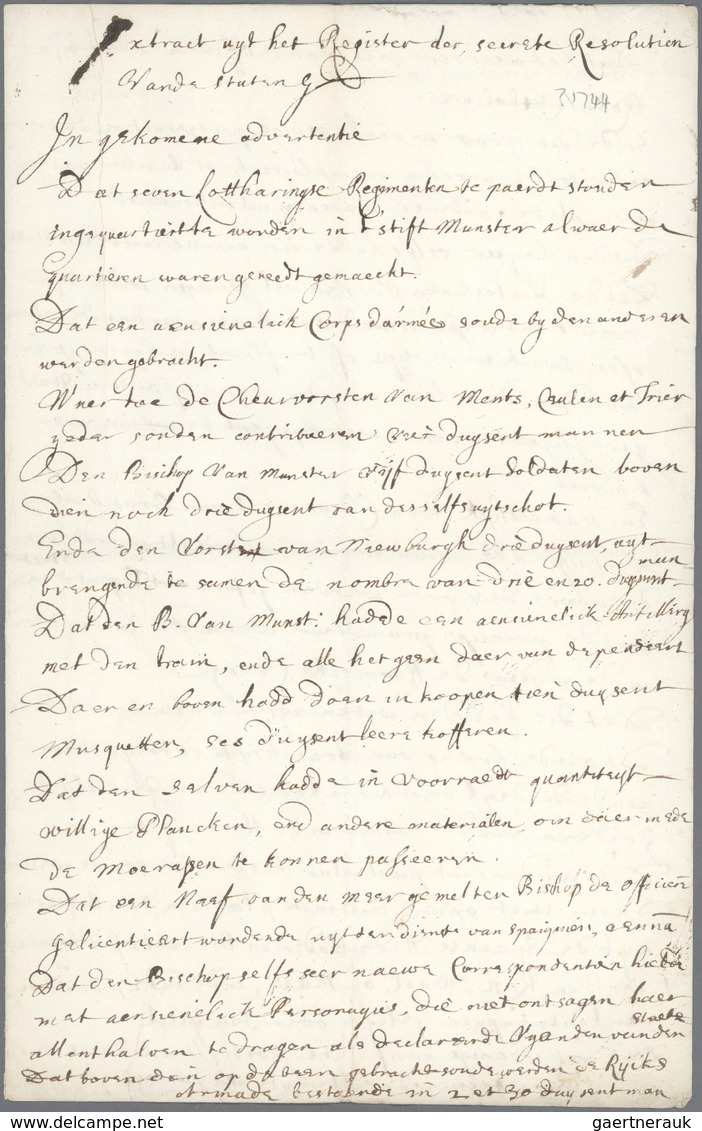 Extract uyt het Register der, secrete Resolutien
Vande staten G
30744
In gekomene advertentie
Dat seven Lottharingse Regimenten te paerdt stonden
ingequartiert te worden in t'stift Munster alwaer de
quartieren waren gereedt gemaeckt.
Dat een aensienelick Corps d'armée soude by den anderen
werden gebracht.
Waer toe de Cheurvorsten Van Ments, Ceulen et Trier
yeder souden contribueren vier duysent mannen
Den Bischop Van Munster vyf duysent Soldaten boven
dien noch drie duysent van desselfs uytschot.
Ende den Vorst van Niewburgh drie duysent, uyt-
brengende te samen de nombre van drie en 20. duysent
man
Dat den B. Van Munst: hadde een aensienelick Artillery
met den train, ende alle het geen daer van dependeert
Daer en boven hadd doen inkoopen tien duysent
Musquetten, ses duysent leere kofferen.
Dat den selven hadde in voorraedt quantiteyt
willige Plancken, end andere materialen, om daer mede
de moerassen te konnen passeeren.
Dat een Neef van den meergemelten Bischop de officien
gelicentieert wordende uyt den dienst van Spaignien, aenna
Dat den Bischop selfs seer nauwe Correspondentien hielde
met aensienelick Personagien, die niet ontsagen haer
allenthalven te dragen als declareerde Vyanden van den
staet
Dat boven dien op de been gebracht soude werden de Ryks
Armade bestaende in 2 et 30 duysent man
gaertnerauk